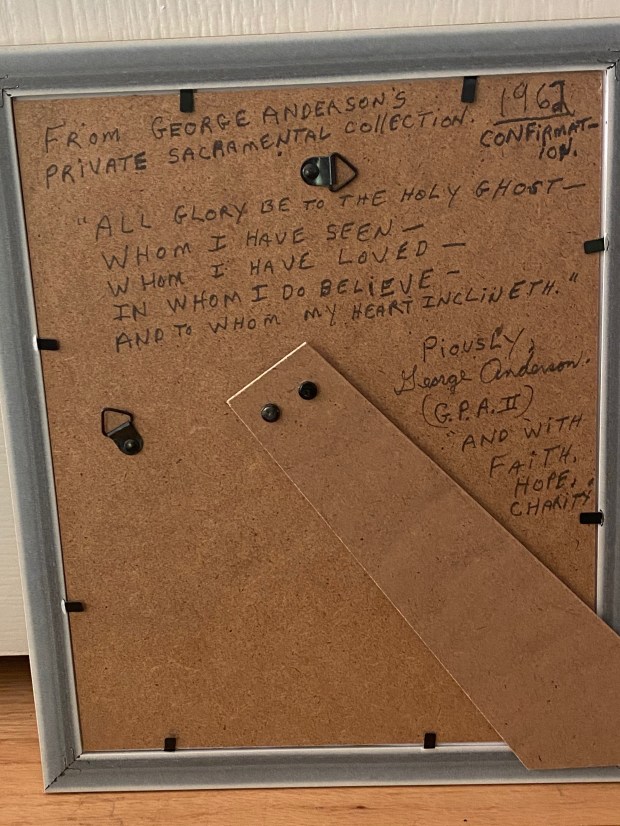 FROM GEORGE ANDERSON'S
PRIVATE SACRAMENTAL COLLECTION.
1962
CONFIRMAT-
ION.
"ALL GLORY BE TO THE HOLY GHOST—
WHOM I HAVE SEEN —
WHOM I HAVE LOVED —
IN WHOM I DO BELIEVE —
AND TO WHOM MY HEART INCLINETH."
PIOUSLY,
George Anderson.
(G.P.A. II)
"AND WITH
FAITH,
HOPE,
CHARITY